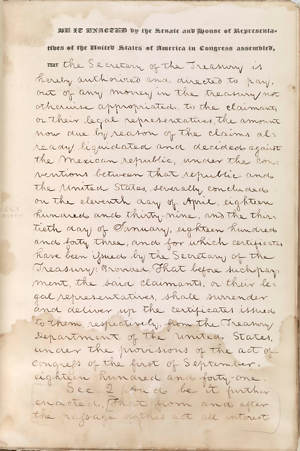 BE IT ENACTED by the Senate and House of Representa-
tives of the United States of America in Congress assembled,
THAT the Secretary of the Treasury is
hereby authorized and directed to pay,
out of any money in the treasury not
otherwise appropriated, to the claimants
or their legal representatives, the amount
now due by reason of the claims al-
ready liquidated and decided against
the Mexican republic, under the con-
ventions between that republic and
the United States, severally, concluded
on the eleventh day of April, eighteen
hundred and thirty-nine, and the thir-
tieth day of January, eighteen hundred
and forty three, and for which certificates
have been issued by the Secretary of the
Treasury: Provided, That before such pay-
ment, the said claimants, or their le-
gal representatives, shall surrender
and deliver up the certificates issued
to them respectively, from the Treasury
Department of the United States,
under the provisions of the act of
Congress of the first of September,
eighteen hundred and forty-one.
Sec. 2 And be it further
enacted, That from and after
the passage of this act all interest